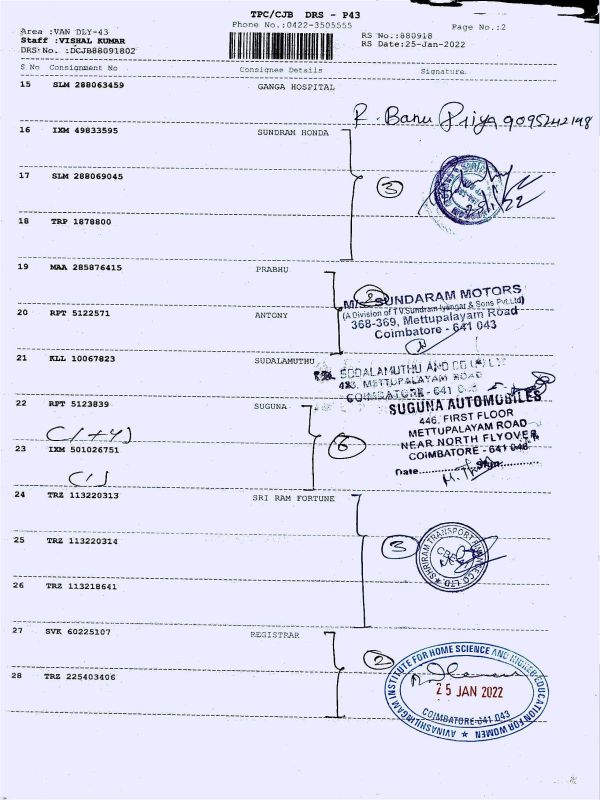 TPC/CJB DRS - P43
Phone No.:0422-3505555
Page No.:2
Area :VAN DLY-43
Staff :VISHAL KUMAR
DRS No. :DCJB88091802
RS No.:880918
RS Date:25-Jan-2022
S No Consignment No Consignee Details Signature
15 SLM 288063459 GANGA HOSPITAL
R. Banu Priya 9095242198
16 IXM 49833595 SUNDRAM HONDA
17 SLM 288069045
3
25/1/22
18 TRP 1878800
19 MAA 285876415 PRABHU
2
M/s. SUNDARAM MOTORS
(A Division of T V Sundram Iyengar & Sons Pvt Ltd)
368-369, Mettupalayam Road
Coimbatore - 641 043
20 RPT 5122571 ANTONY
21 KLL 10067823 SUDALAMUTHU
SUDALAMUTHU AND CO
423, METTUPALAYAM ROAD
COIMBATORE - 641
22 RPT 5123839 SUGUNA
SUGUNA AUTOMOBILES
446, FIRST FLOOR
METTUPALAYAM ROAD
NEAR NORTH FLYOVER
COIMBATORE - 641 043
Date
C(1+4)
6
23 IXM 501026751
C(1)
24 TRZ 113220313 SRI RAM FORTUNE
25 TRZ 113220314
3
SHRIRAM TRANSPORT FINANCE CO. LTD.
CBE
26 TRZ 113218641
27 SVK 60225107 REGISTRAR
2
AVINASHILINGAM INSTITUTE FOR HOME SCIENCE AND HIGHER EDUCATION FOR WOMEN
25 JAN 2022
COIMBATORE-641 043
28 TRZ 225403406